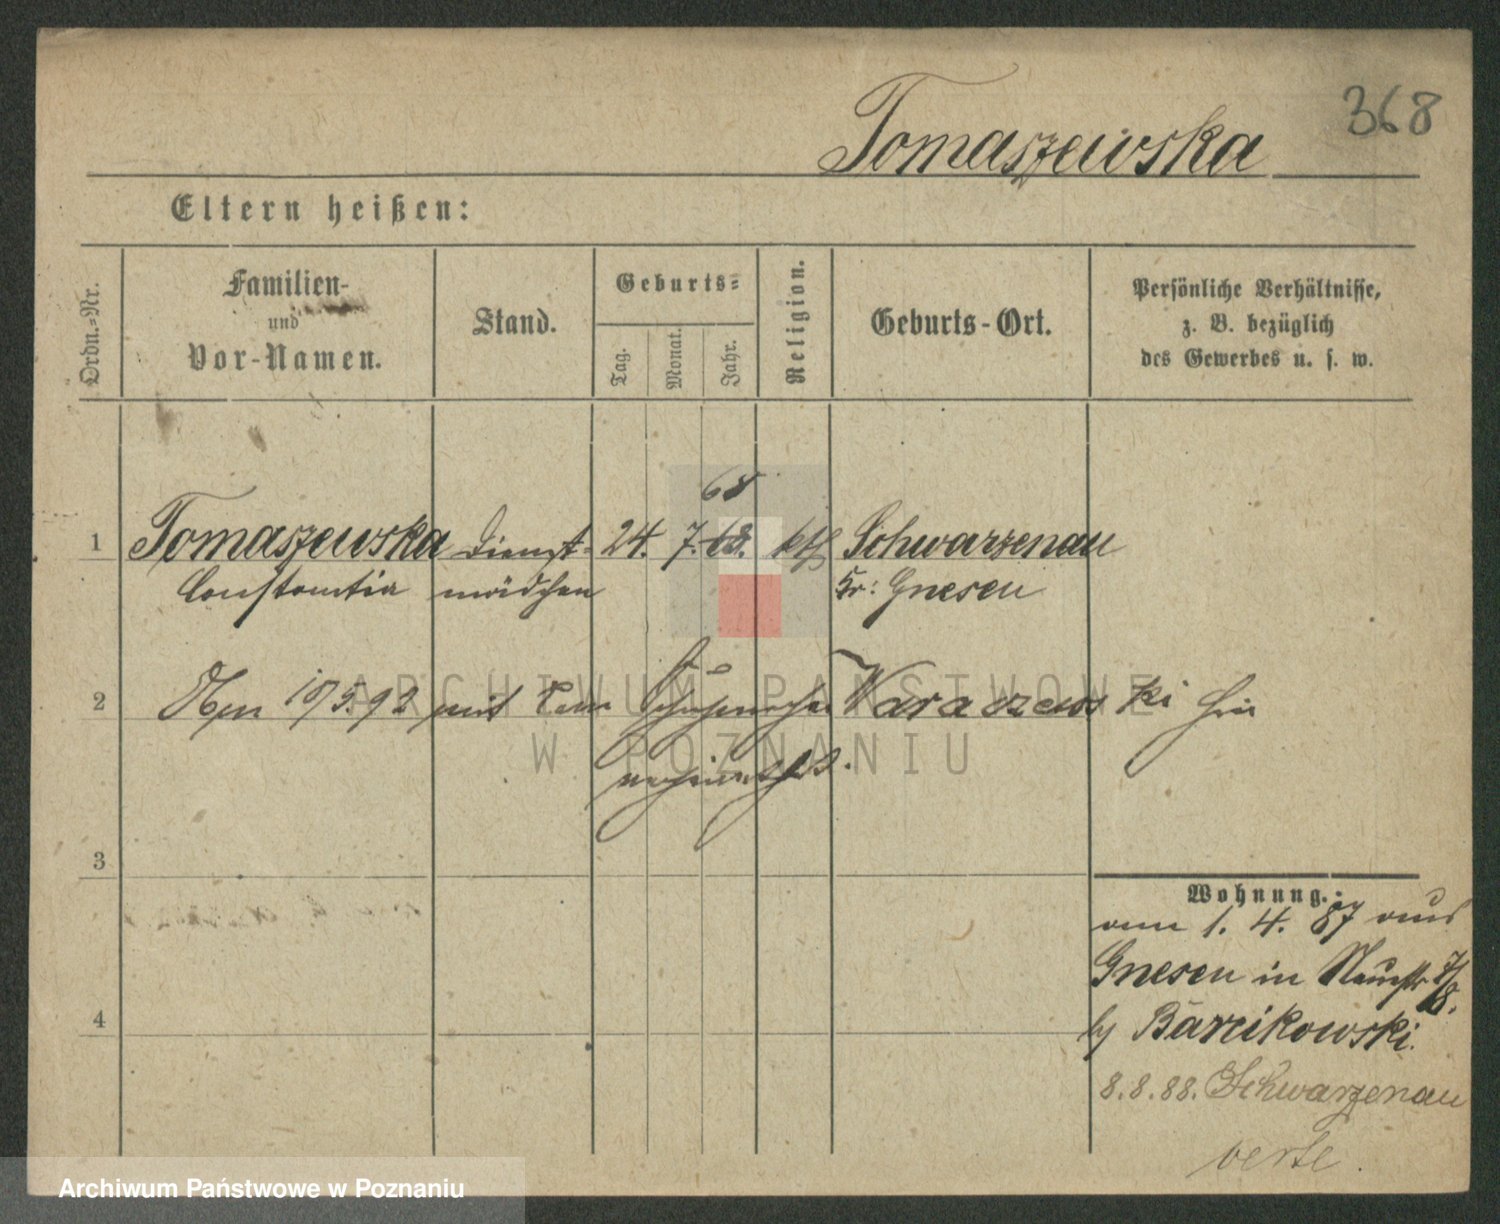 368
Tomaszewska
Eltern heißen:
Ordn.-Nr.
Familien-
und
Vor-Namen.
Stand.
Geburts-
Tag.
Monat.
Jahr.
Religion.
Geburts-Ort.
Persönliche Verhältnisse,
z. B. bezüglich
des Gewerbes u. s. w.
68
1 Tomaszewska Dienst- 24. 7. 68. kth Schwarzenau
Constantia mädchen Kr: Gnesen
2 10/5.92 mit dem Schuhmacher Waraczewski hier
verheirathet.
3
Wohnung.
am 1. 4. 87 aus
Gnesen in Neustr 7/8.
by Barcikowski.
4
8.8.88. Schwarzenau
verte.
ARCHIWUM PAŃSTWOWE
W POZNANIU
Archiwum Państwowe w Poznaniu